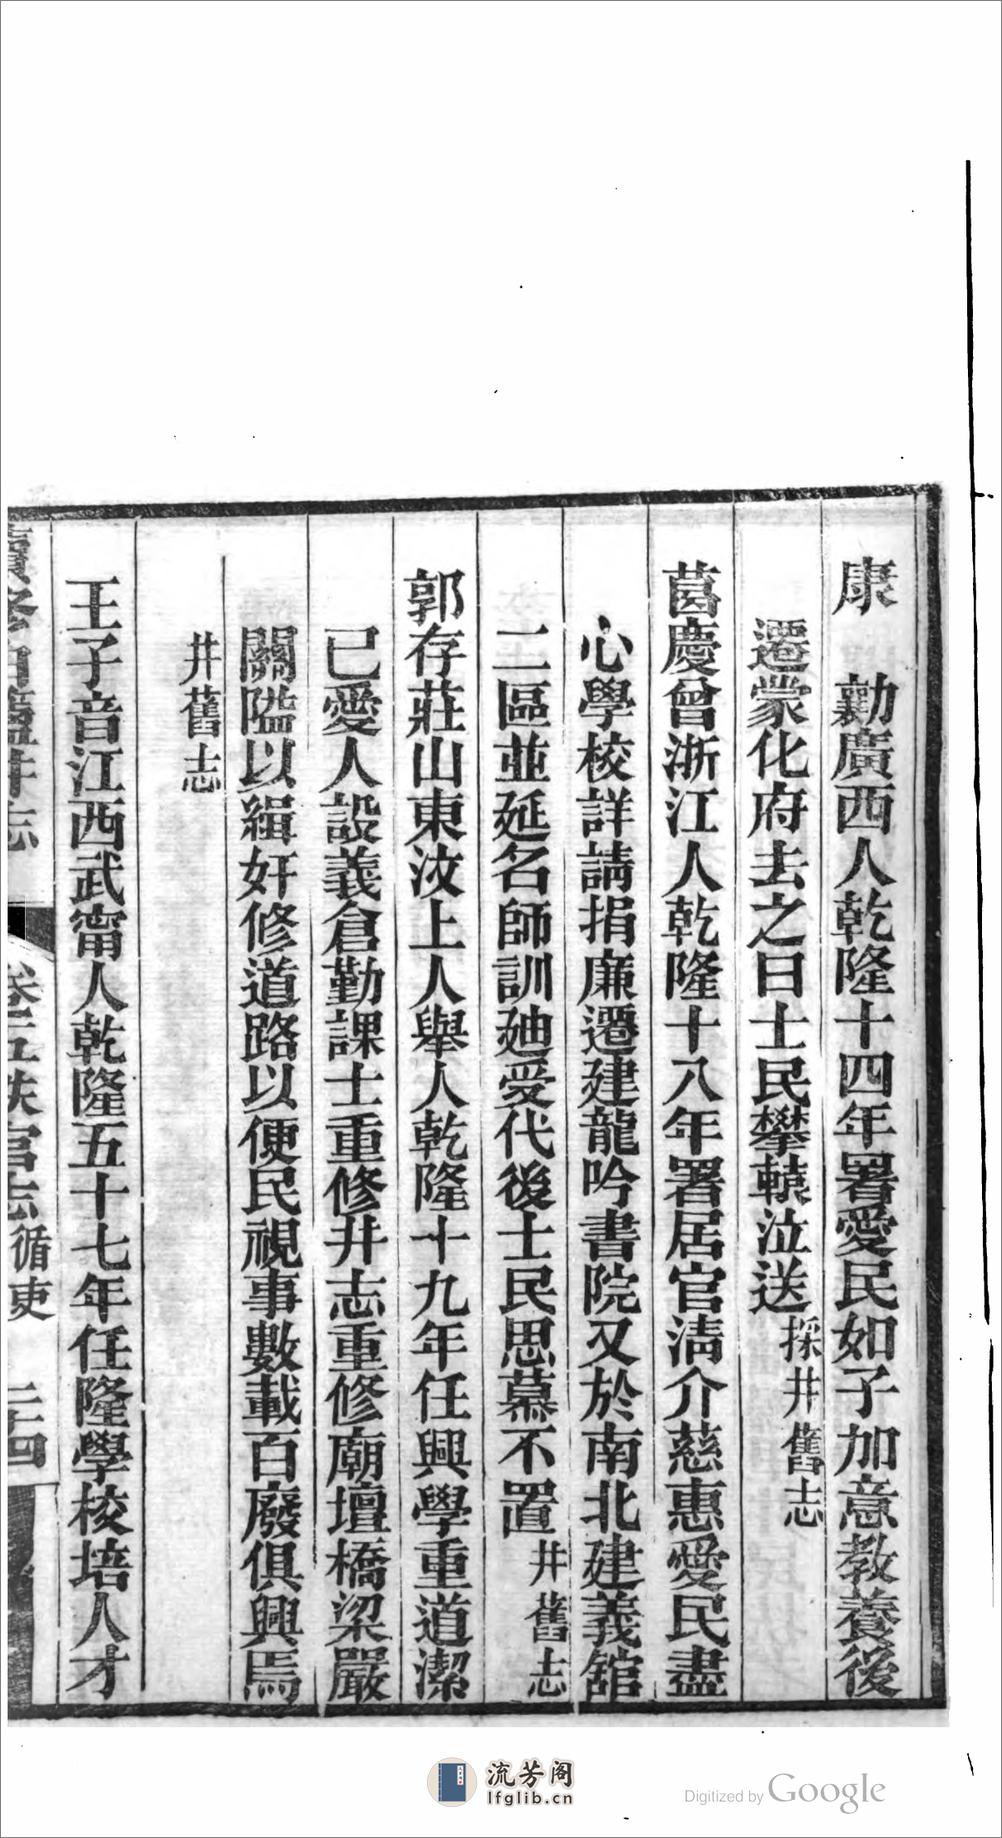 康　勷廣西人乾隆十四年署愛民如子加意教養後
遷蒙化府去之日士民攀轅泣送採井舊志
葛慶曾浙江人乾隆十八年署居官淸介慈惠愛民盡
心學校詳請捐廉遷建龍吟書院又於南北建義舘
二區並延名師訓廸受代後士民思慕不置井舊志
郭存莊山東汶上人舉人乾隆十九年任興學重道潔
已愛人設義倉勤課士重修井志重修廟壇橋梁嚴
關隘以緝奸修道路以便民視事數載百廢俱興焉
井舊志
王子音江西武甯人乾隆五十七年任隆學校培人才
續修白鹽井志
卷五秩官志循吏
二十四
流芳阁
lfglib.cn
Digitized by Google